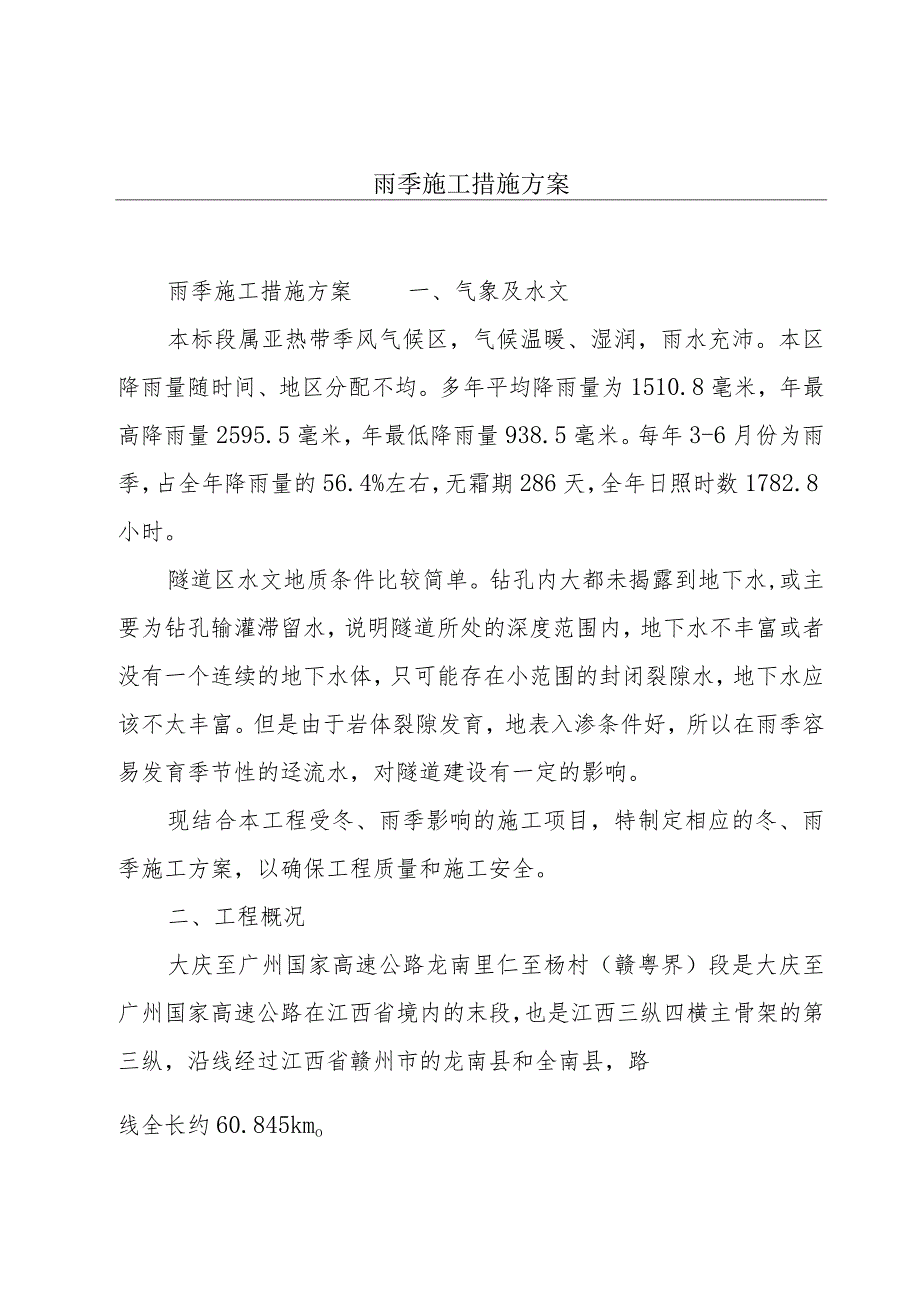 雨季施工措施方案
雨季施工措施方案 一、气象及水文
本标段属亚热带季风气候区，气候温暖、湿润，雨水充沛。本区
降雨量随时间、地区分配不均。多年平均降雨量为1510.8毫米，年最
高降雨量2595.5毫米，年最低降雨量938.5毫米。每年3-6月份为雨
季，占全年降雨量的56.4%左右，无霜期286天，全年日照时数1782.8
小时。
隧道区水文地质条件比较简单。钻孔内大都未揭露到地下水，或主
要为钻孔输灌滞留水，说明隧道所处的深度范围内，地下水不丰富或者
没有一个连续的地下水体，只可能存在小范围的封闭裂隙水，地下水应
该不太丰富。但是由于岩体裂隙发育，地表入渗条件好，所以在雨季容
易发育季节性的迳流水，对隧道建设有一定的影响。
现结合本工程受冬、雨季影响的施工项目，特制定相应的冬、雨
季施工方案，以确保工程质量和施工安全。
二、工程概况
大庆至广州国家高速公路龙南里仁至杨村（赣粤界）段是大庆至
广州国家高速公路在江西省境内的末段，也是江西三纵四横主骨架的第
三纵，沿线经过江西省赣州市的龙南县和全南县，路
线全长约60.845km。